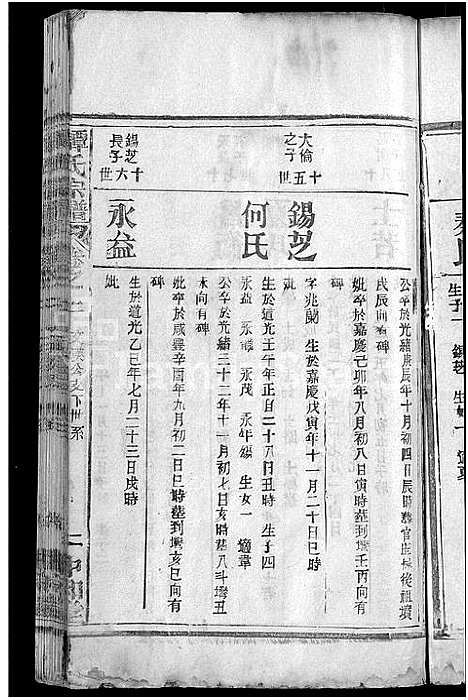 大倫之子 十五世
錫芝
何氏
錫芝長子 十六世
永益
公卒於光緒庚辰年十月初四日辰時葬官 後祖墳
戌辰向有碑
妣卒於嘉慶己卯年八月初八日寅時葬到壪壬丙向有
碑
字兆蘭 生於嘉慶戊寅年十一月二十日巳時
妣
生於道光壬午年正月二十八日丑時 生子四
永益 永茂 永年 生女一 適韋
公卒於光緒三十二年十一月初七日亥時葬八斗壪丑
未向有碑
妣卒於咸豐辛酉年九月初二日巳時葬到壪亥巳向有
碑
生於道光乙巳年七月二十三日戌時
妣
譚氏宗譜
世系
生子一 錫芝 生女一